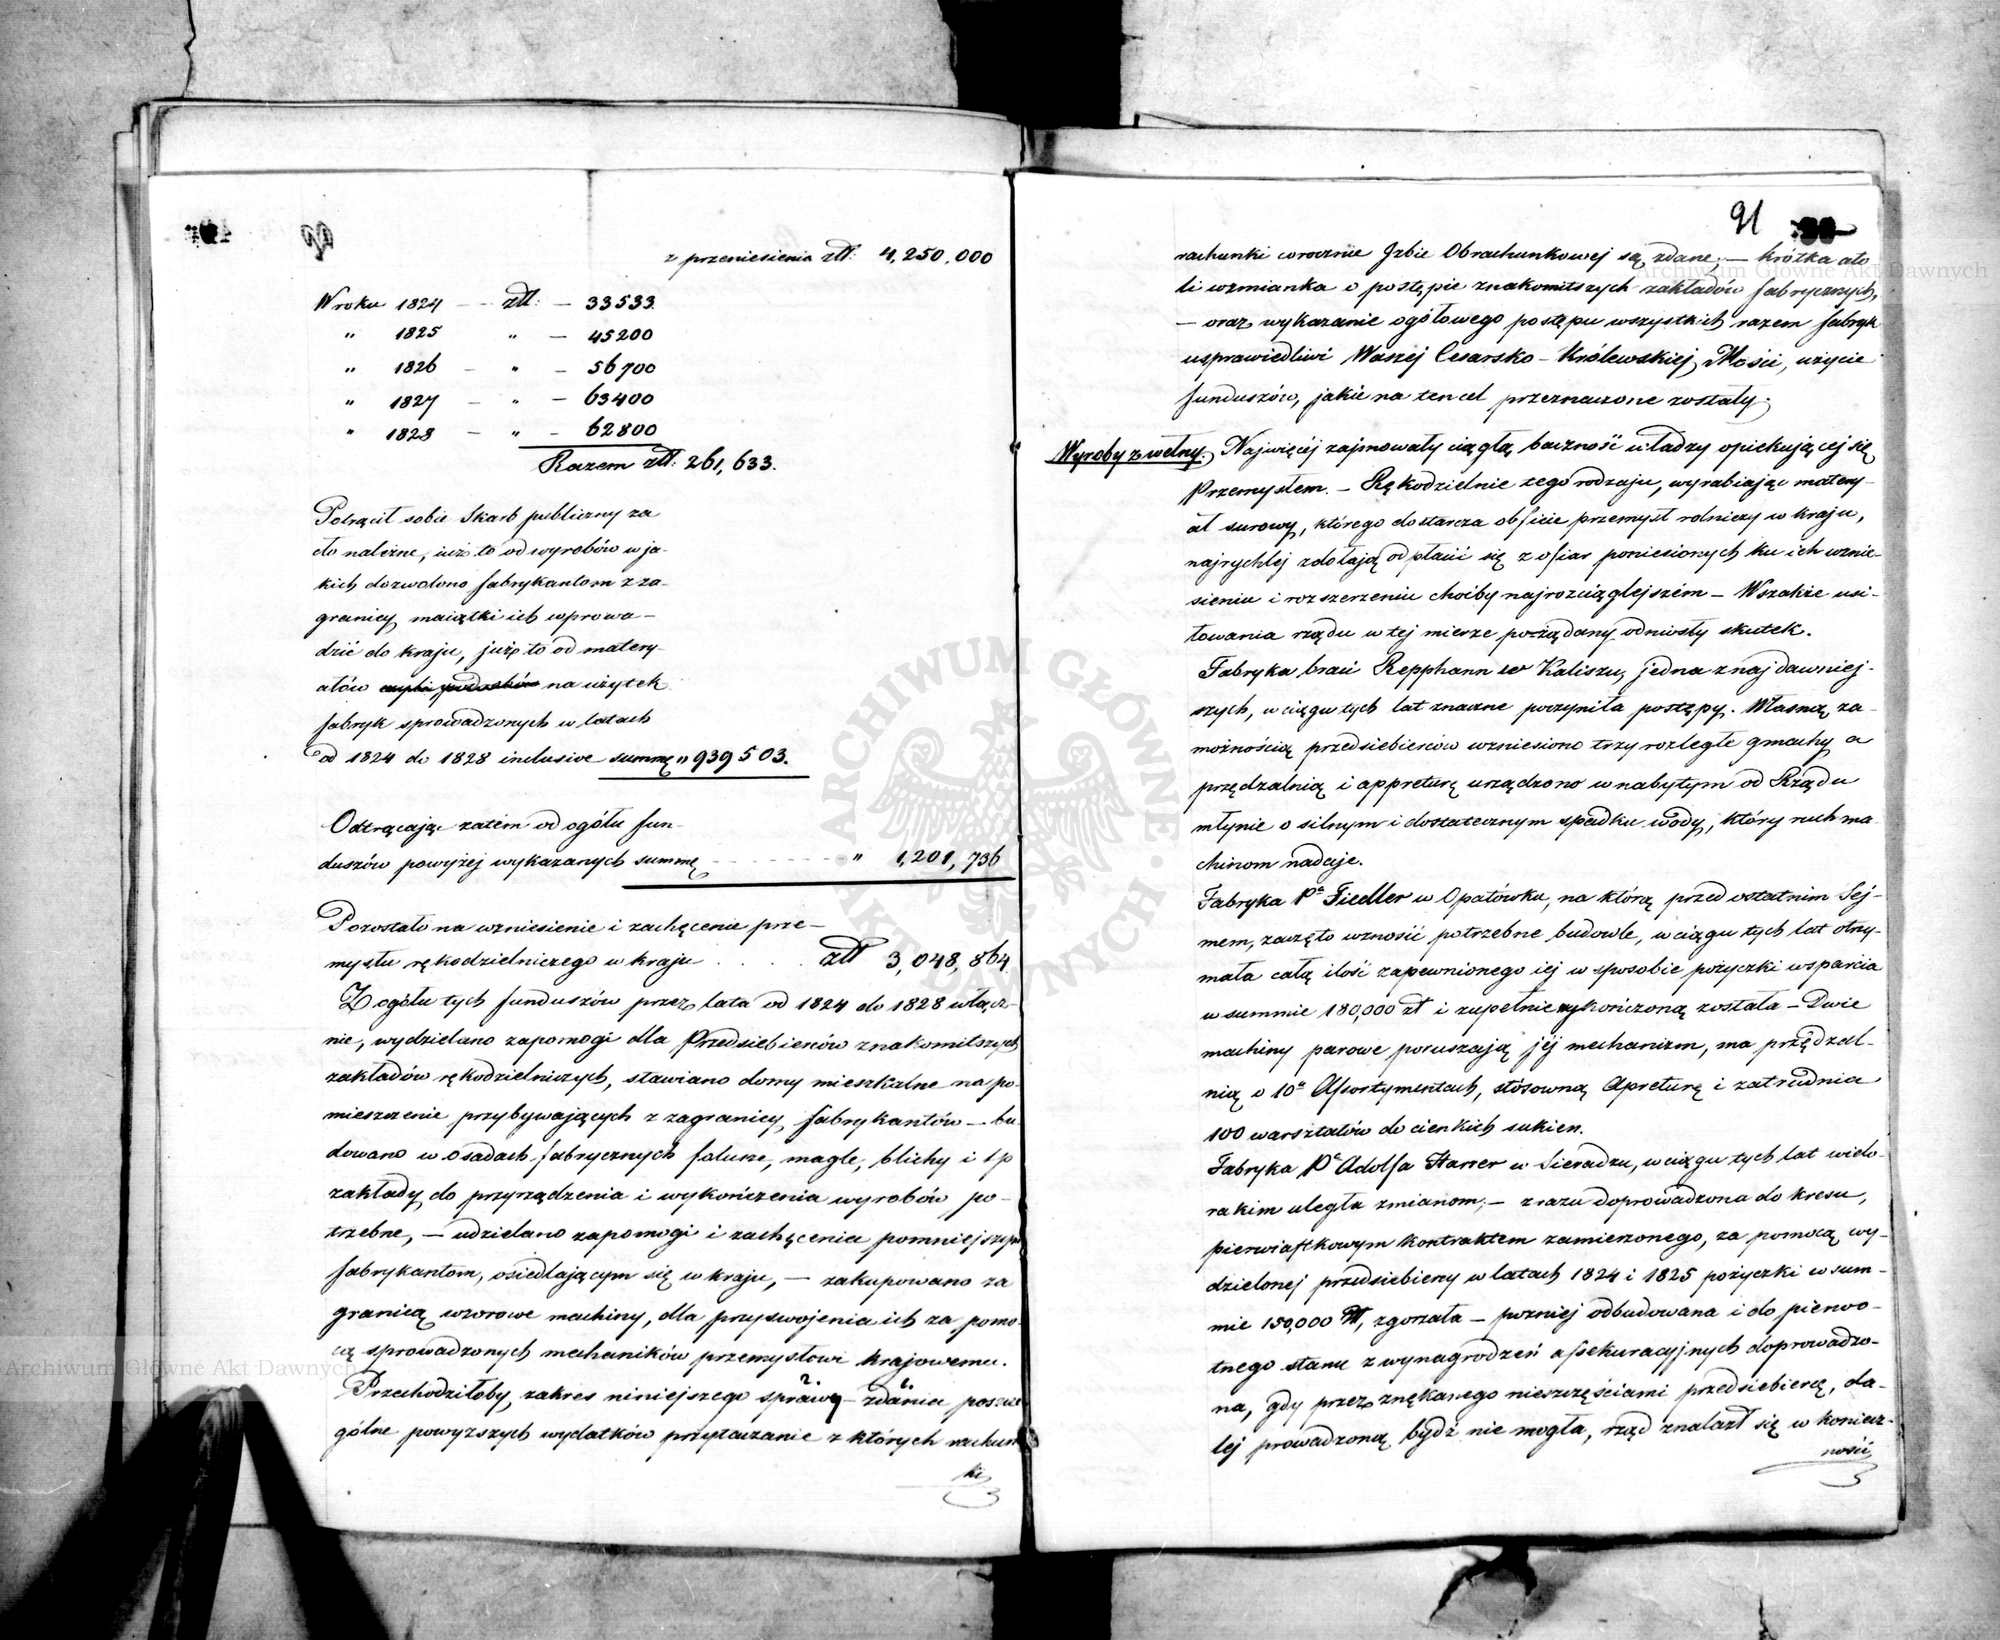 z przeniesienia złł: 4,250,000
W roku 1824 — złł: — 33533.
" 1825 " — 45200
" 1826 — " — 56700
" 1827 — " — 63400
" 1828 — " — 62800
Razem złł: 261,633.
Potrącił sobie Skarb publiczny za
cło należne, już to od wyrobów w ja-
kich dozwolono fabrykantom z za-
granicy maiątki ich wprowa-
dzić do kraju, już to od matery-
ałów na użytek
fabryk sprowadzonych w latach
od 1824 do 1828 inclusive summę " 939503.
Odtrącając zatem od ogółu fun-
duszów powyżej wykazanych summę " 1,201,736
Pozostało na wzniesienie i zachęcenie prze-
mysłu rękodzielniczego w kraju . . . . złł 3,048,864
Z ogółu tych funduszów przez lata od 1824 do 1828 włącz-
nie, wydzielano zapomogi dla Przedsiebierców znakomitszych
zakładów rękodzielniczych, stawiano domy mieszkalne na po-
mieszczenie przybywających z zagranicy fabrykantów — bu-
dowano w osadach fabrycznych folusze, magle, blichy i t p
zakłady do przyrządzenia i wykończenia wyrobów po-
trzebne, — udzielano zapomogi i zachęcenia pomniejszym
fabrykantom, osiedlającym się w kraju, — zakupowano za
granicą wzorowe machiny, dla przyswojenia ich za pomo-
cą sprowadzonych mechaników przemysłowi krajowemu.
Przechodziłoby zakres niniejszego sprawo-zdania poszcze
gólne powyższych wydatków przytaczanie z których rachun
ki
91
rachunki corocznie Izbie Obrachunkowej są zdane; — krótka ato
li wzmianka o postępie znakomitszych zakładów fabrycznych,
— oraz wykazanie ogółowego postępu wszystkich razem fabryk
usprawiedliwi Waszej Cesarsko-Królewskiej Mości, użycie
funduszów, jakie na ten cel przeznaczone zostały.
Wyroby z wełny. Najwięcéj zajmowały ciągłą baczność władzy opiekującej się
Przemysłem. — Rękodzielnie tego rodzaju, wyrabiając matery-
ał surowy, którego dostarcza obficie przemysł rolniczy w kraju,
najrychlej zdołają odpłacić się z ofiar poniesionych ku ich wznie-
sieniu i rozszerzeniu choćby najrozciąglejszém — Wszakże usi-
łowania rządu w tej mierze pożądany odniosły skutek.
Fabryka braci Repphann w Kaliszu, jedna z najdawniej-
szych, w ciągu tych lat znaczne poczyniła postępy. Własną za-
możnością przedsiebierców wzniesiono trzy rozległe gmachy a
przędzalnią i appreturę urządzono w nabytym od Rządu
młynie o silnym i dostatecznym spadku wody, który ruch ma-
chinom nadaje.
Fabryka Pa Fiedler w Opatówku, na którą przed ostatnim Sej-
mem, zaczęto wznosić potrzebne budowle, w ciągu tych lat otrzy-
mała całą ilość zapewnionego iej w sposobie pożyczki wsparcia
w summie 180,000 zł i zupełnie wykończoną została — Dwie
machiny parowe poruszają jéj mechanizm, ma przędzal-
nią o 10u Assortymentach, stósowną Apreturę i zatrudnia
100 warsztatów do cienkich sukien.
Fabryka Pa Adolfa Harrer w Sieradzu, w ciągu tych lat wielo-
rakim uległa zmianom; — z razu doprowadzona do kresu,
pierwiastkowym kontraktem zamierzonego, za pomocą wy-
dzielonej przedsiebiercy w latach 1824 i 1825 pożyczki w sum-
mie 150,000 złł, zgorzała — pozniej odbudowana i do pierwo-
tnego stanu z wynagrodzeń assekuracyjnych doprowadzo-
na, gdy przez znękanego nieszczęściami przedsiebiercę, da-
lej prowadzoną bydź nie mogła, rząd znalazł się w koniecz-
ności
Archiwum Główne Akt Dawnych
Archiwum Główne Akt Dawnych
ARCHIWUM GŁÓWNE AKT DAWNYCH